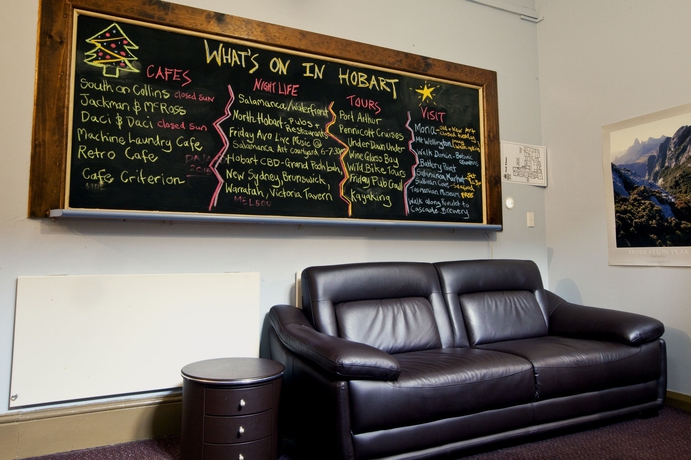 WHAT'S ON IN HOBART
CAFES
South on Collins closed Sun
Jackman & McRoss
Daci & Daci closed Sun
Machine Laundry Cafe
Retro Cafe
Cafe Criterion
NIGHT LIFE
Salamanca/Waterfront
North Hobart - pubs + Restaurants
Friday Avo Live Music @
Salamanca Art Courtyard 6-7:30
Hobart CBD - Grand Poohbah,
New Sydney, Brunswick,
Warratah, Victoria Tavern
TOURS
Port Arthur
Pennicott Cruises
Under Down Under
Wine Glass Bay
Wild Bike Tours
Friday Pub Crawl
Kayaking
VISIT
MONA -
Mt Wellington
Walk Domain - Botanic
Battery Point
Salamanca Market -
Tasmanian Museum FREE
Walk along Rivulet to
Cascade Brewery